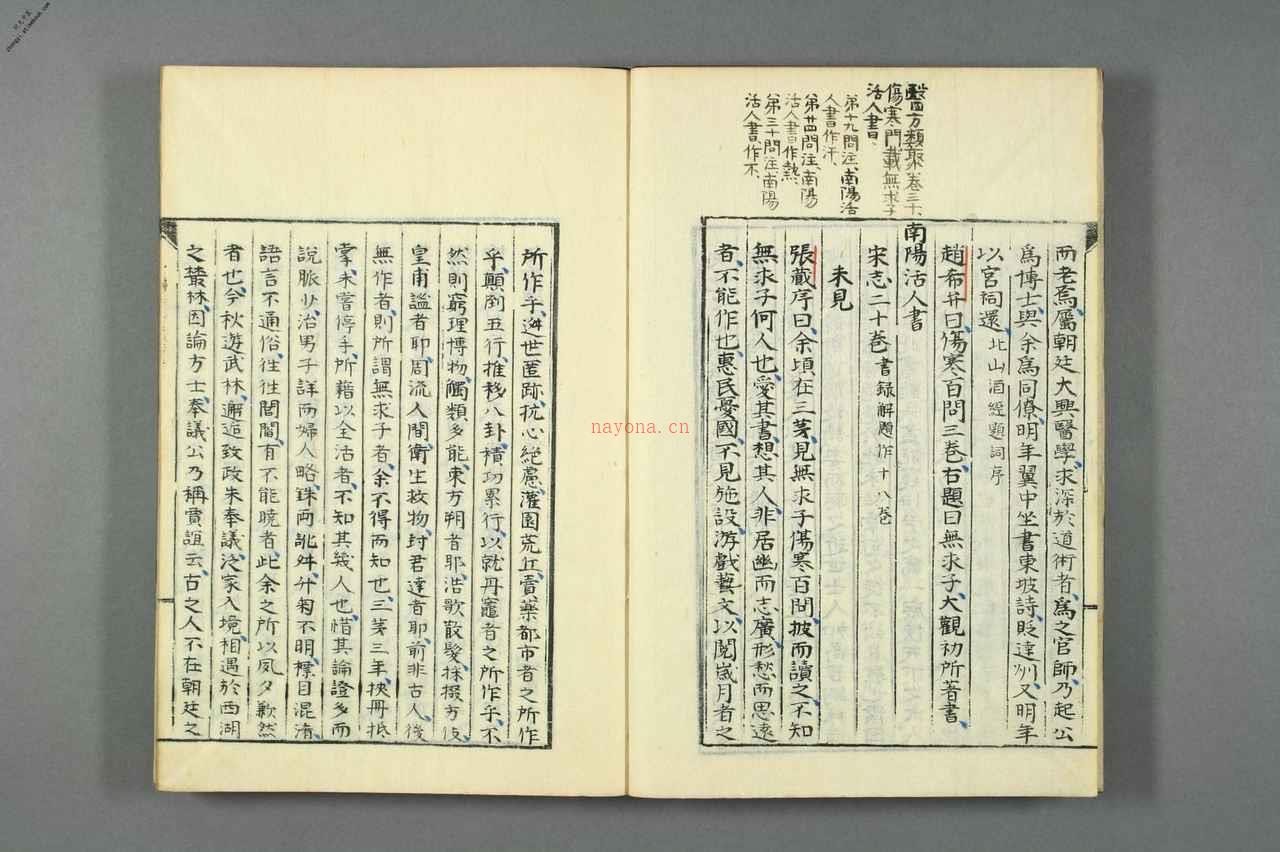 醫方類聚卷三十、
傷寒門載無求子
活人書曰、
第十九問注、南陽活
人書作汗、
第廿四問注、南陽
活人書作熱、
第三十問注、南陽
活人書作不、
而老焉、屬朝廷大興醫學、求深於道術者、爲之官師、乃起公
爲博士、與余爲同僚、明年翼中坐書東坡詩、貶達州、又明年
以宮祠還、北山酒經題詞序
趙希弁曰、傷寒百問三卷、右題曰無求子、大觀初所著書、
南陽活人書
宋志二十卷 書錄解題作十八卷
未見
張蕆序曰、余頃在三茅、見無求子傷寒百問、披而讀之、不知
無求子何人也、愛其書、想其人、非居幽而志廣、形愁而思遠
者、不能作也、惠民憂國、不見施設、游戲藝文、以閱歲月者之
所作乎、遯世匿跡、抗心絕慮、灌園荒丘、賣藥都市者之所作
乎、顛倒五行、推移八卦、積功累行、以就丹竈者之所作乎、不
然、則窮理博物、觸類多能、東方朔者耶、浩歌散髮、採掇方伎、
皇甫謐者耶、周流人間、衛生救物、封君達者耶、前非古人、後
無作者、則所謂無求子者、余不得而知也、三茅三年、挾冊抵
掌、未嘗停手、所藉以全活者、不知其幾人也、惜其論證多而
說脈少、治男子詳而婦人略、銖兩訛舛、升𣁋不明、標目混淆、
語言不通俗、往往閭閻有不能曉者、此余之所以夙夕歉然
者也、今秋遊武林、邂逅致政朱奉議、泛家入境、相遇於西湖
之叢林、因論方士、奉議公乃稱賈誼云、古之人不在朝廷之
nayona.cn